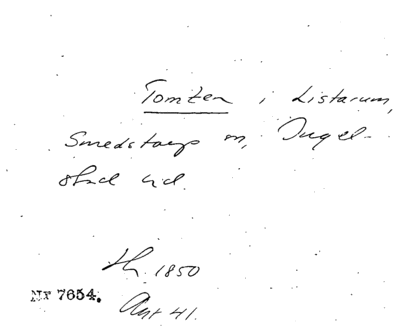 Tomten i Listarum,
Smedstorps sn, Ingel-
stad hd.
th. 1850
Nr 7654.
Ant 41.